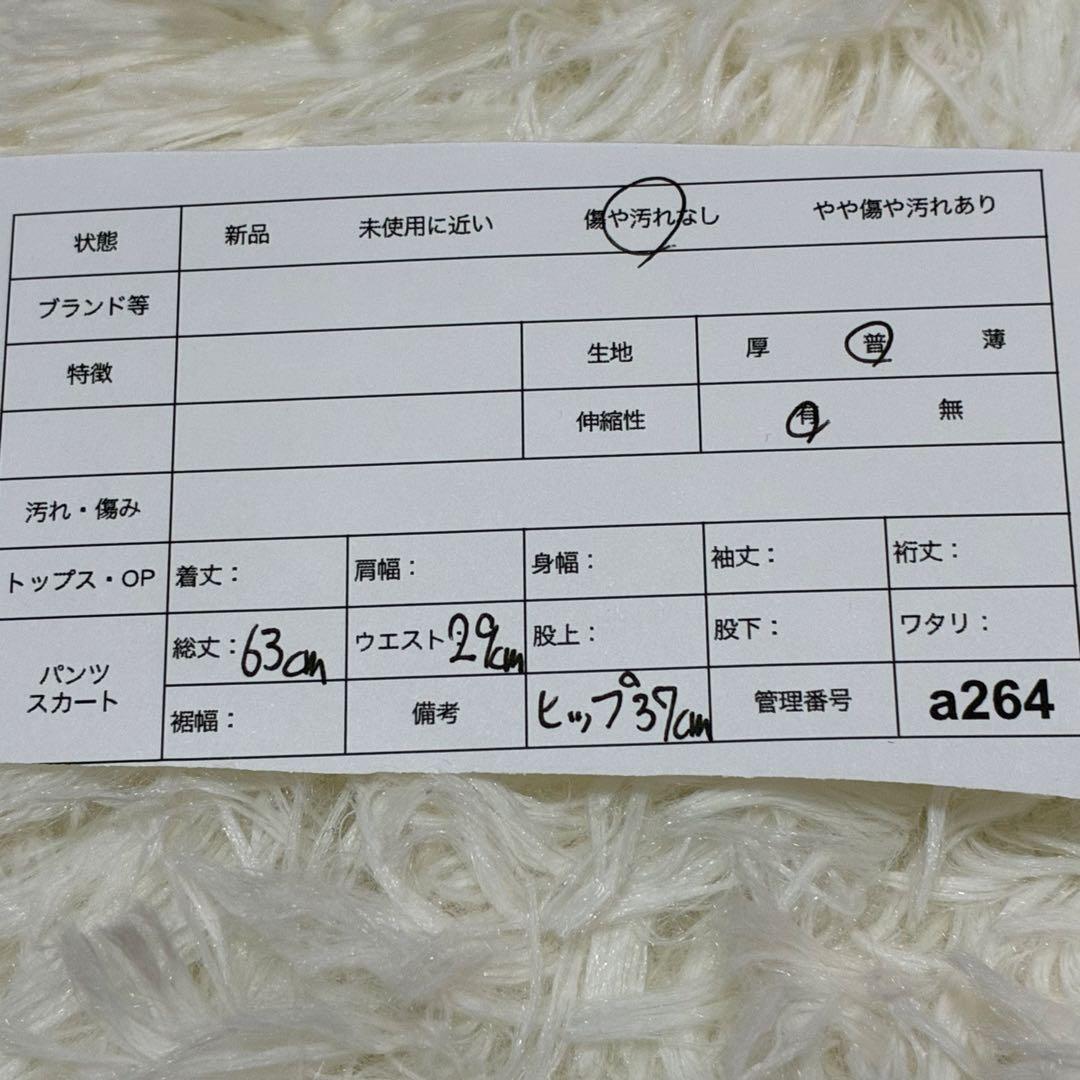 状態 新品 未使用に近い 傷や汚れなし やや傷や汚れあり
ブランド等
特徴 生地 厚 普 薄
伸縮性 有 無
汚れ・傷み
トップス・OP 着丈： 肩幅： 身幅： 袖丈： 裄丈：
パンツ スカート 総丈：63cm ウエスト29cm 股上： 股下： ワタリ：
裾幅： 備考 ヒップ37cm 管理番号 a264